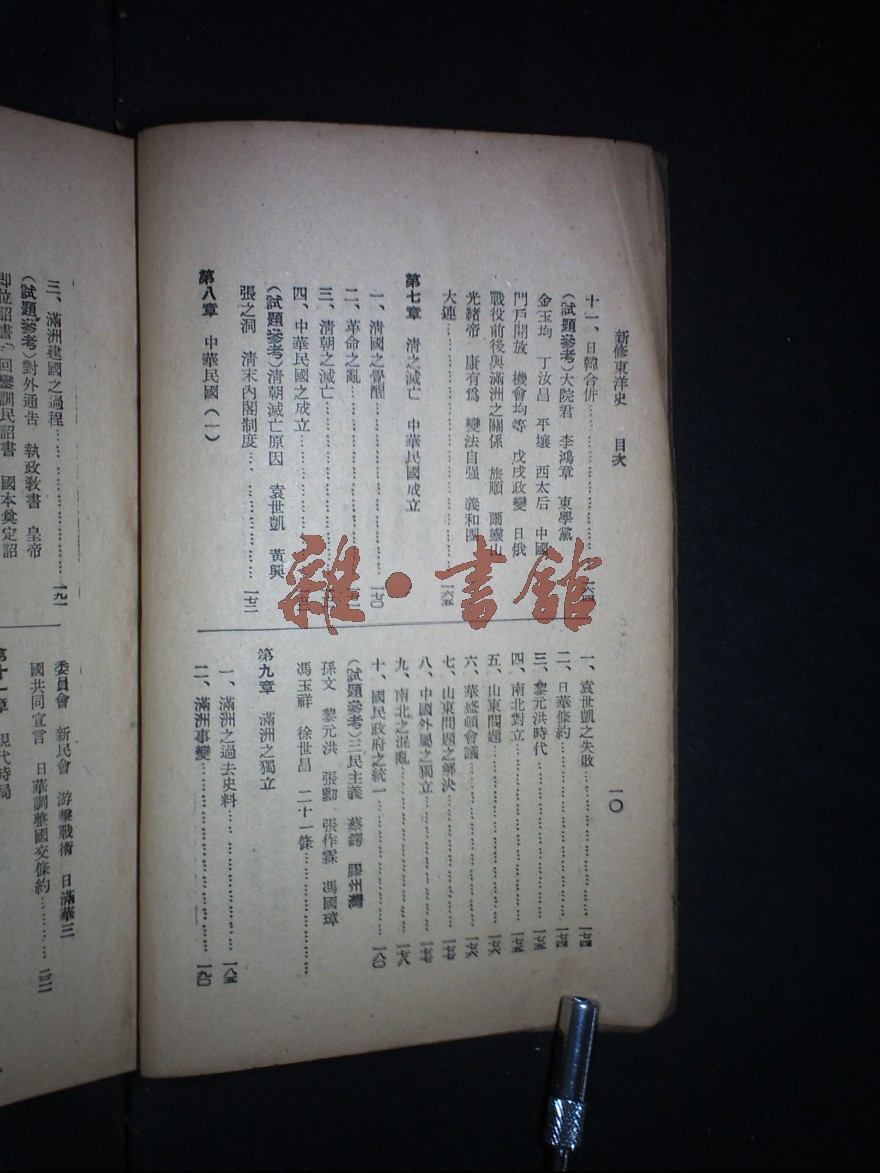 新修東洋史 目次
一〇
十一、日韓合併
(試題參考)大院君 李鴻章 東學黨
金玉均 丁汝昌 平壤 西太后 中國
門戶開放 機會均等 戊戌政變 日俄
戰役前後與滿洲之關係 旅順 爾靈山
光緒帝 康有爲 變法自强 義和團
大連……一六五
第七章 清之滅亡 中華民國成立
一、清國之覺醒……一七〇
二、革命之亂
三、清朝之滅亡
四、中華民國之成立
(試題參考)清朝滅亡原因 袁世凱 黃興
張之洞 清末內閣制度……一七三
第八章 中華民國(一)
一、袁世凱之失敗……一七四
二、日華條約……一七四
三、黎元洪時代……一七五
四、南北對立……一七五
五、山東問題……一七六
六、華盛頓會議……一七六
七、山東問題之解決……一七七
八、中國外屬之獨立……一七七
九、南北之混亂……一七八
十、國民政府之統一……一八〇
(試題參考)三民主義 蔡鍔 膠州灣
孫文 黎元洪 張勳 張作霖 馮國璋
馮玉祥 徐世昌 二十一條……
第九章 滿洲之獨立
一、滿洲之過去史料……一八五
二、滿洲事變……一九〇
三、滿洲建國之過程……一九一
(試題參考)對外通告 執政教書 皇帝
即位詔書 回鑾訓民詔書 國本奠定詔
委員會 新民會 游擊戰術 日滿華三
國共同宣言 日華調整國交條約……二二一
第十一章 現代時局
雜·書館